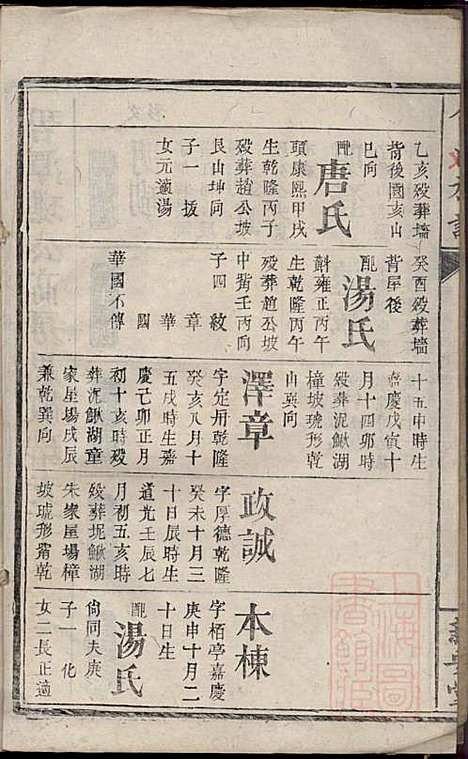 乙亥殁葬墻
背後園亥山
巳向
配唐氏
頭康熙甲戌
生乾隆丙子
殁葬趙公坡
艮山坤同
子一 拔
女元適湯
癸酉殁葬墻
背屋後
配湯氏
斛雍正丙午
生乾隆丙午
殁葬趙公坡
中背壬丙向
子四 紋
章
華
國
華國不傳
十五申時生
嘉慶戊寅十
月十四卯時
殁葬泥鰍湖
橦坡琥形乾
山㢲向
澤章
字定卅乾隆
癸亥八月十
五戌時生嘉
慶己卯正月
初十亥時殁
葬泥鰍湖童
家星塲戌辰
兼乾㢲向
政誠
字厚德乾隆
癸未十月三
十日辰時生
道光壬辰七
月初五亥時
殁葬坭鰍湖
朱家屋場樟
坡琥形霄乾
本棟
字栢亭嘉慶
庚申十月二
十日生
配湯氏
尙同夫庚
子一 化
女二長正適